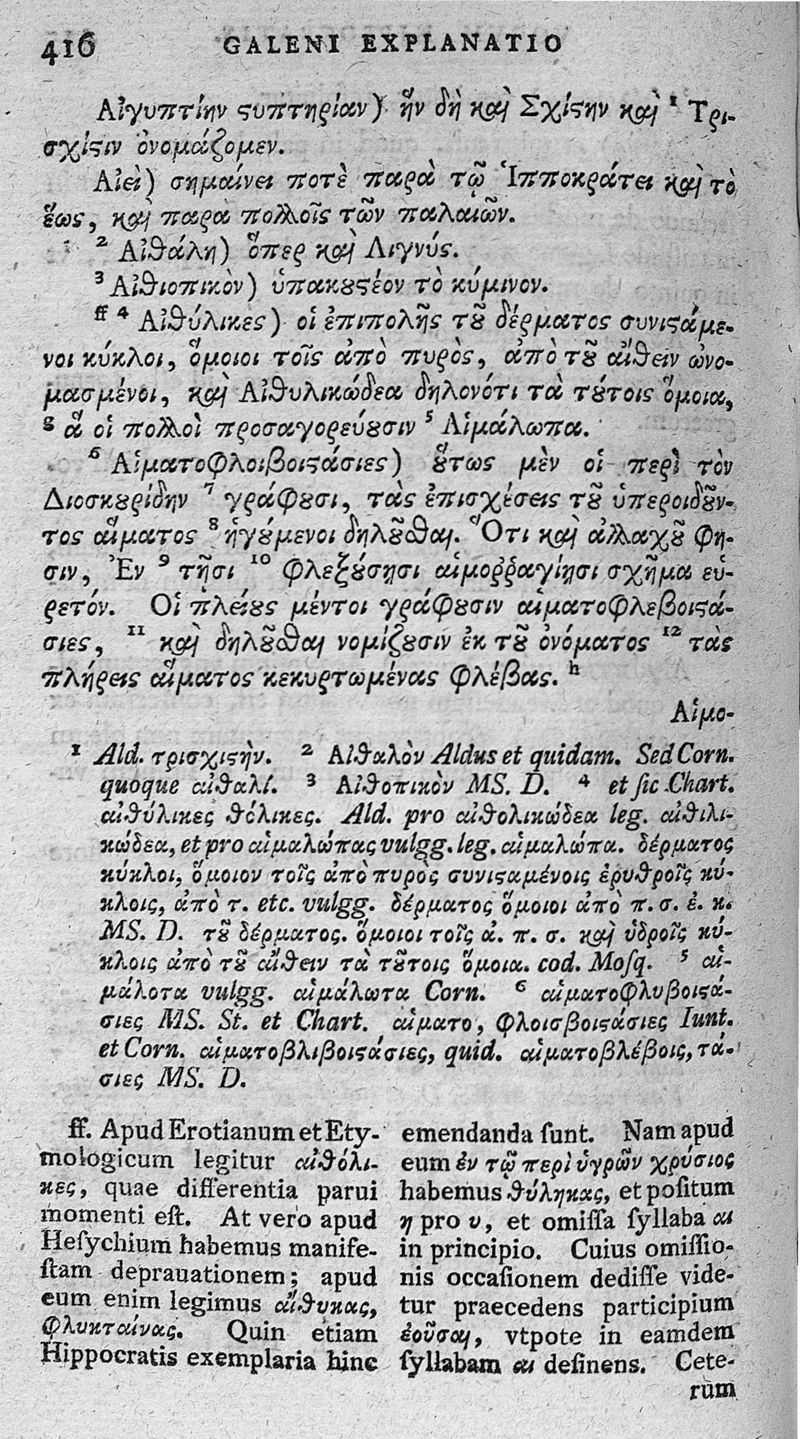 416 GALENI EXPLANATIO
Αἰγυπτίην ϛυπτηρίαν) ἣν δὴ καὶ Σχίϛην καὶ ¹ Τρι-
σχίϛιν ὀνομάζομεν.
Αἰεὶ) σημαίνει ποτὲ παρὰ τῷ Ἱπποκράτει καὶ τὸ
ἕως, καὶ παρα πολλοῖς τῶν παλαιῶν.
² Αἰθάλη) ὅπερ καὶ Λιγνύς.
³ Αἰθιοπικὸν) ὑπακουϛέον τὸ κύμινον.
ff ⁴ Αἰθύλικες) οἱ ἐπιπολῆς τοῦ δέρματος συνιϛάμε-
νοι κύκλοι, ὅμοιοι τοῖς ἀπὸ πυρὸς, ἀπὸ τοῦ αἴθειν ὠνο-
μασμένοι, καὶ Αἰθυλικώδεα δηλονότι τὰ τούτοις ὅμοια,
g ἃ οἱ πολλοὶ προσαγορεύουσιν ⁵ Αἱμάλωπα.
⁶ Αἱματοφλοιβοιϛάσιες) οὕτως μὲν οἱ περὶ τὸν
Διοσκουρίδην ⁷ γράφουσι, τὰς ἐπισχέσεις τοῦ ὑπεροιδοῦν-
τος αἵματος ⁸ ἡγούμενοι δηλοῦσθαι. Ὅτι καὶ ἀλλαχοῦ φη-
σιν, Ἐν ⁹ τῇσι ¹⁰ φλεξούσῃσι αἱμοῤῥαγίῃσι σχῆμα εὑ-
ρετόν. Οἱ πλείους μέντοι γράφουσιν αἱματοφλεβοιϛά-
σιες, ¹¹ καὶ δηλοῦσθαι νομίζουσιν ἐκ τοῦ ὀνόματος ¹² τὰς
πλήρεις αἵματος κεκυρτωμένας φλέβας. h
Αἱμο-
¹ Ald. τρισχιϛὴν. ² Αἰθαλὸν Aldus et quidam. Sed Corn.
quoque αἰθαλί. ³ Αἰθοπικὸν MS. D. ⁴ et ſic Chart.
αἰθύλικες θόλικες. Ald. pro αἰθολικώδεα leg. αἰθιλι-
κώδεα, et pro αἱμαλώπας vulgg. leg. αἱμαλώπα. δέρματος
κύκλοι, ὅμοιον τοῖς ἀπὸ πυρὸς συνιϛαμένοις ἐρυθροῖς κύ-
κλοις, ἀπὸ τ. etc. vulgg. δέρματος ὅμοιοι ἀπὸ π. σ. ἐ. κ.
MS. D. τοῦ δέρματος. ὅμοιοι τοῖς ἀ. π. σ. καὶ ὑδροῖς κύ-
κλοις ἀπὸ τοῦ αἴθειν τὰ τούτοις ὅμοια. cod. Moſq. ⁵ αἱ-
μάλοτα vulgg. αἱμάλωτα Corn. ⁶ αἱματοφλυβοιϛά-
σιες MS. St. et Chart. αἱματο, φλοισβοιϛάσιες Iunt.
et Corn. αἱματοβλιβοιϛάσιες, quid. αἱματοβλέβοις, τά-
σιες MS. D.
ff. Apud Erotianum et Ety-
mologicum legitur αἰθόλι-
κες, quae differentia parui
momenti eſt. At vero apud
Heſychium habemus manife-
ſtam deprauationem; apud
eum enim legimus αἴθυκας,
φλυκταίνας. Quin etiam
Hippocratis exemplaria hinc
emendanda ſunt. Nam apud
eum ἐν τῷ περὶ ὑγρῶν χρύσιος
habemus θύληκας, et poſitum
η pro υ, et omiſſa ſyllaba αι
in principio. Cuius omiſſio-
nis occaſionem dediſſe vide-
tur praecedens participium
ἐοῦσαι, vtpote in eamdem
ſyllabam αι deſinens. Cete-
rum